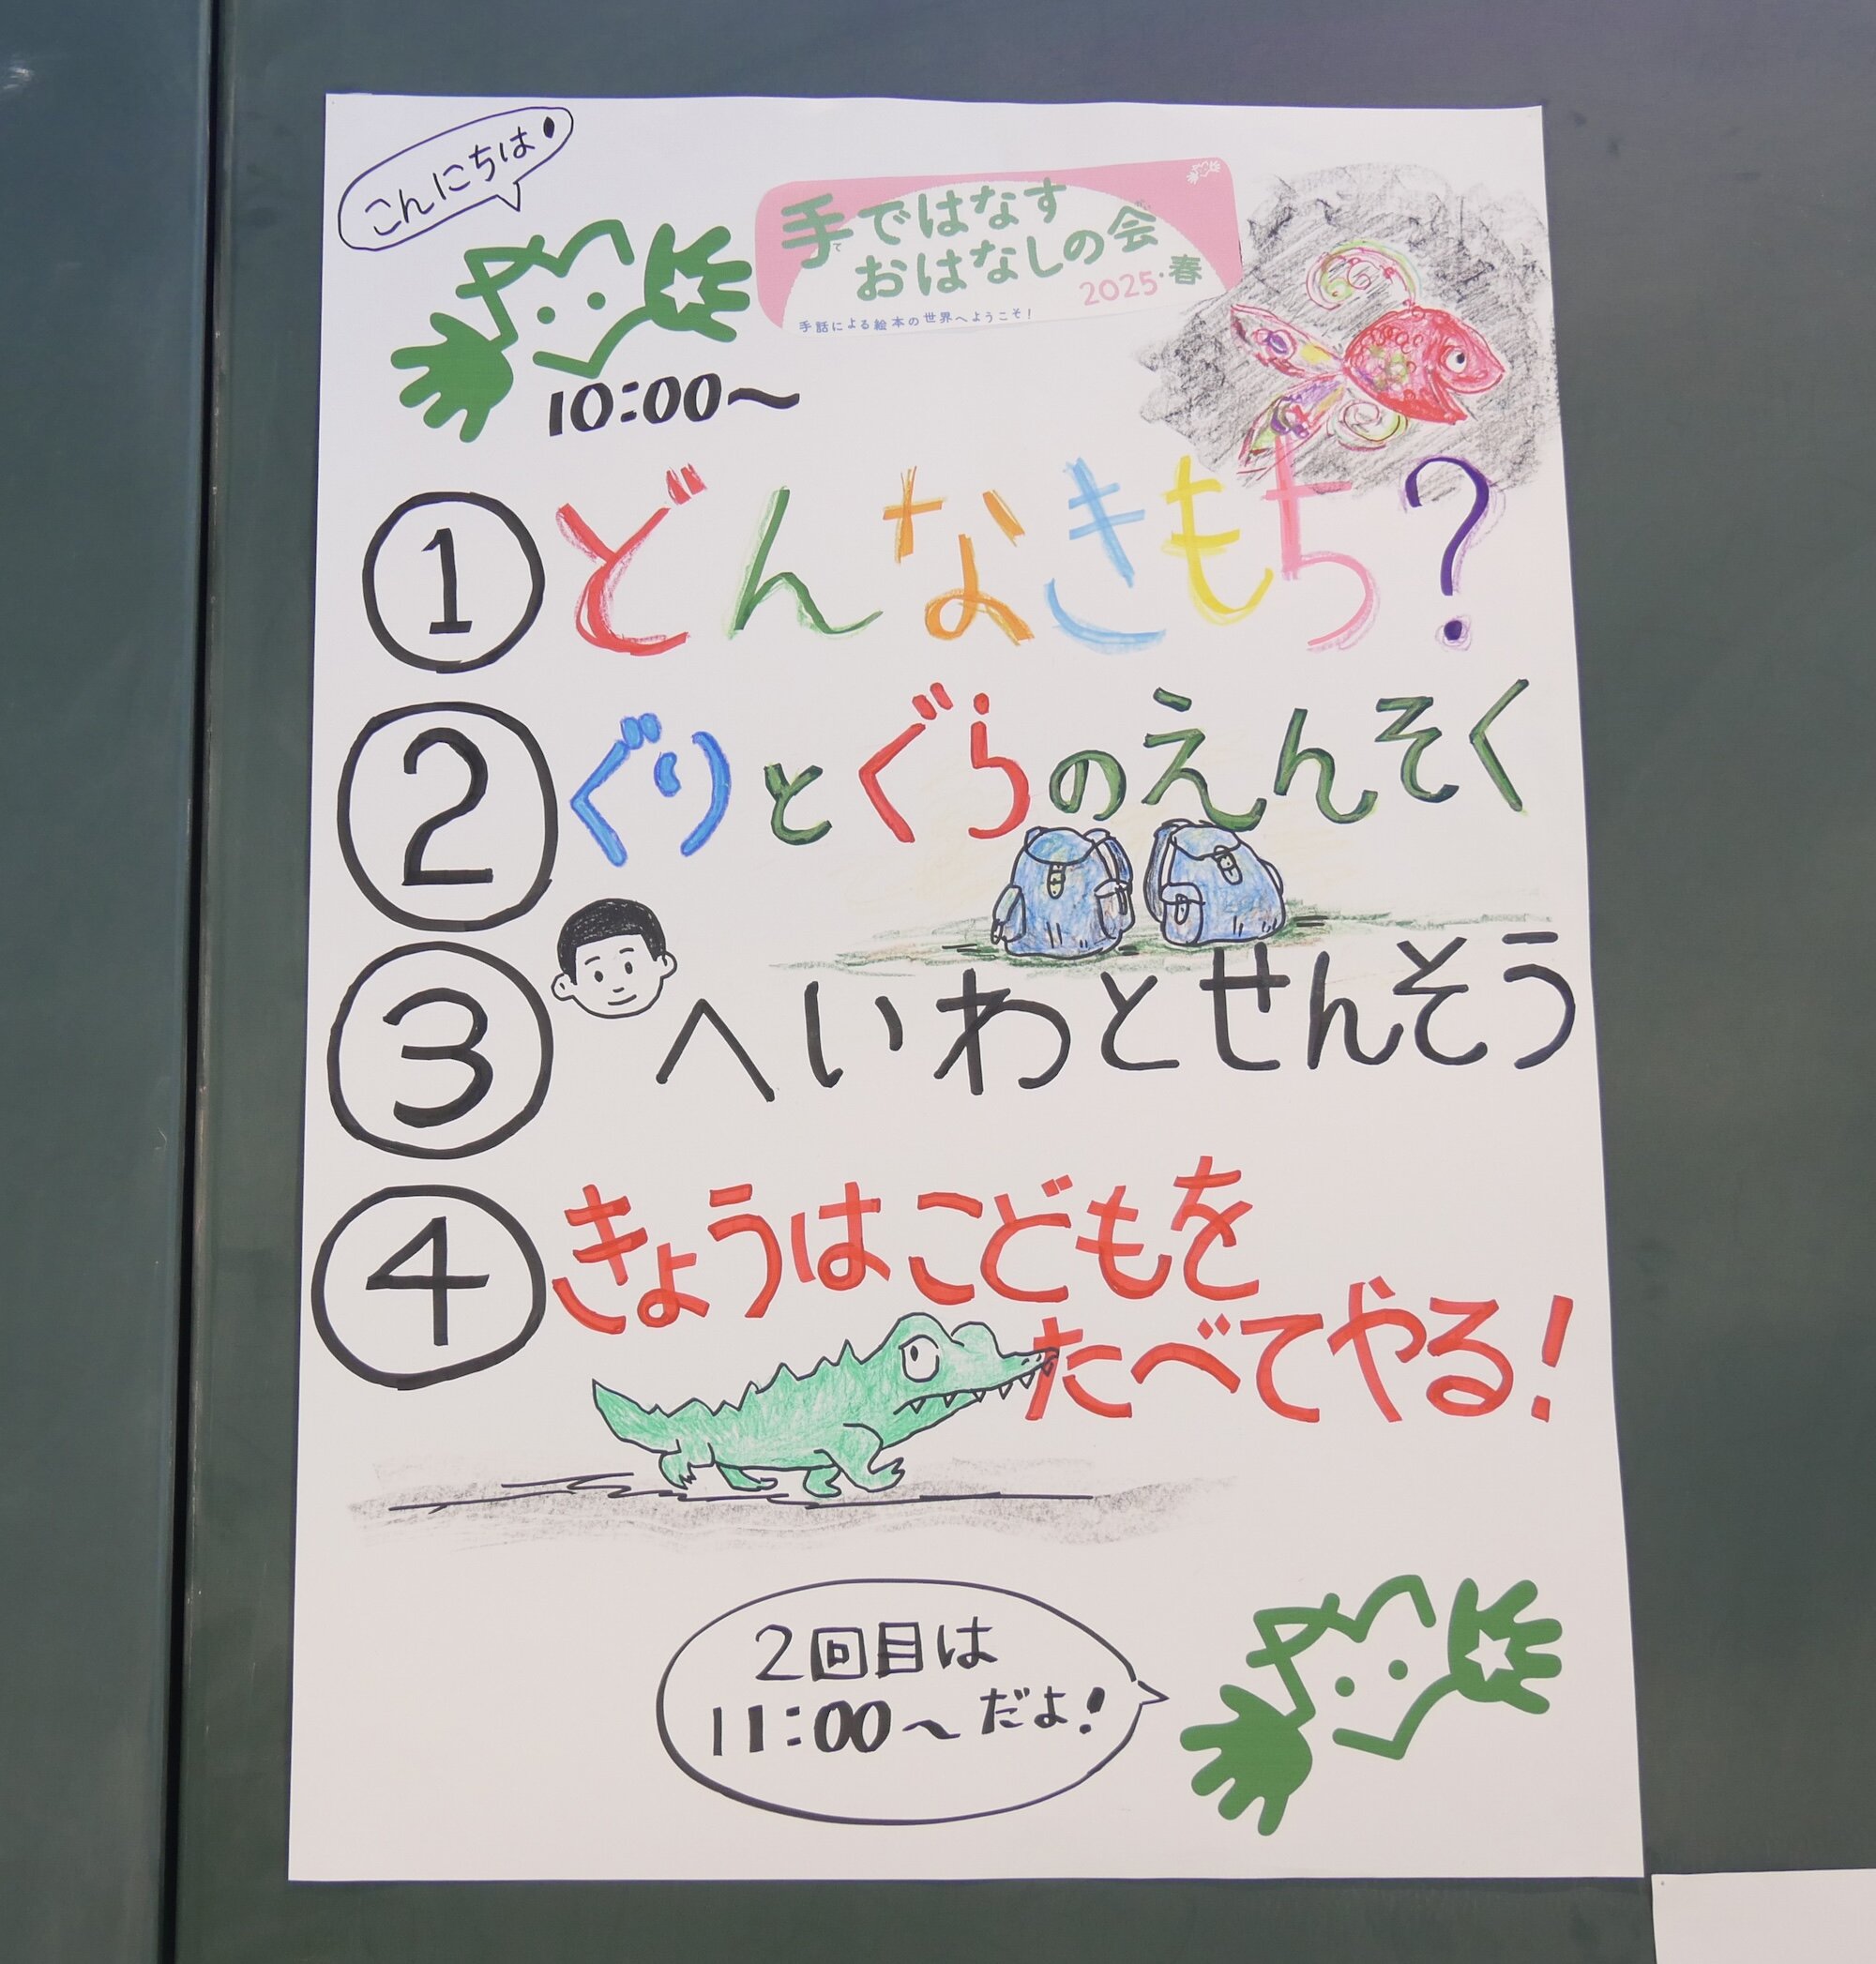 こんにちは
手ではなす
おはなしの会
2025・春
手話による絵本の世界へようこそ！
10:00～
① どんなきもち？
② ぐりとぐらのえんそく
③ へいわとせんそう
④ きょうはこどもを
たべてやる！
2回目は
11:00～だよ！